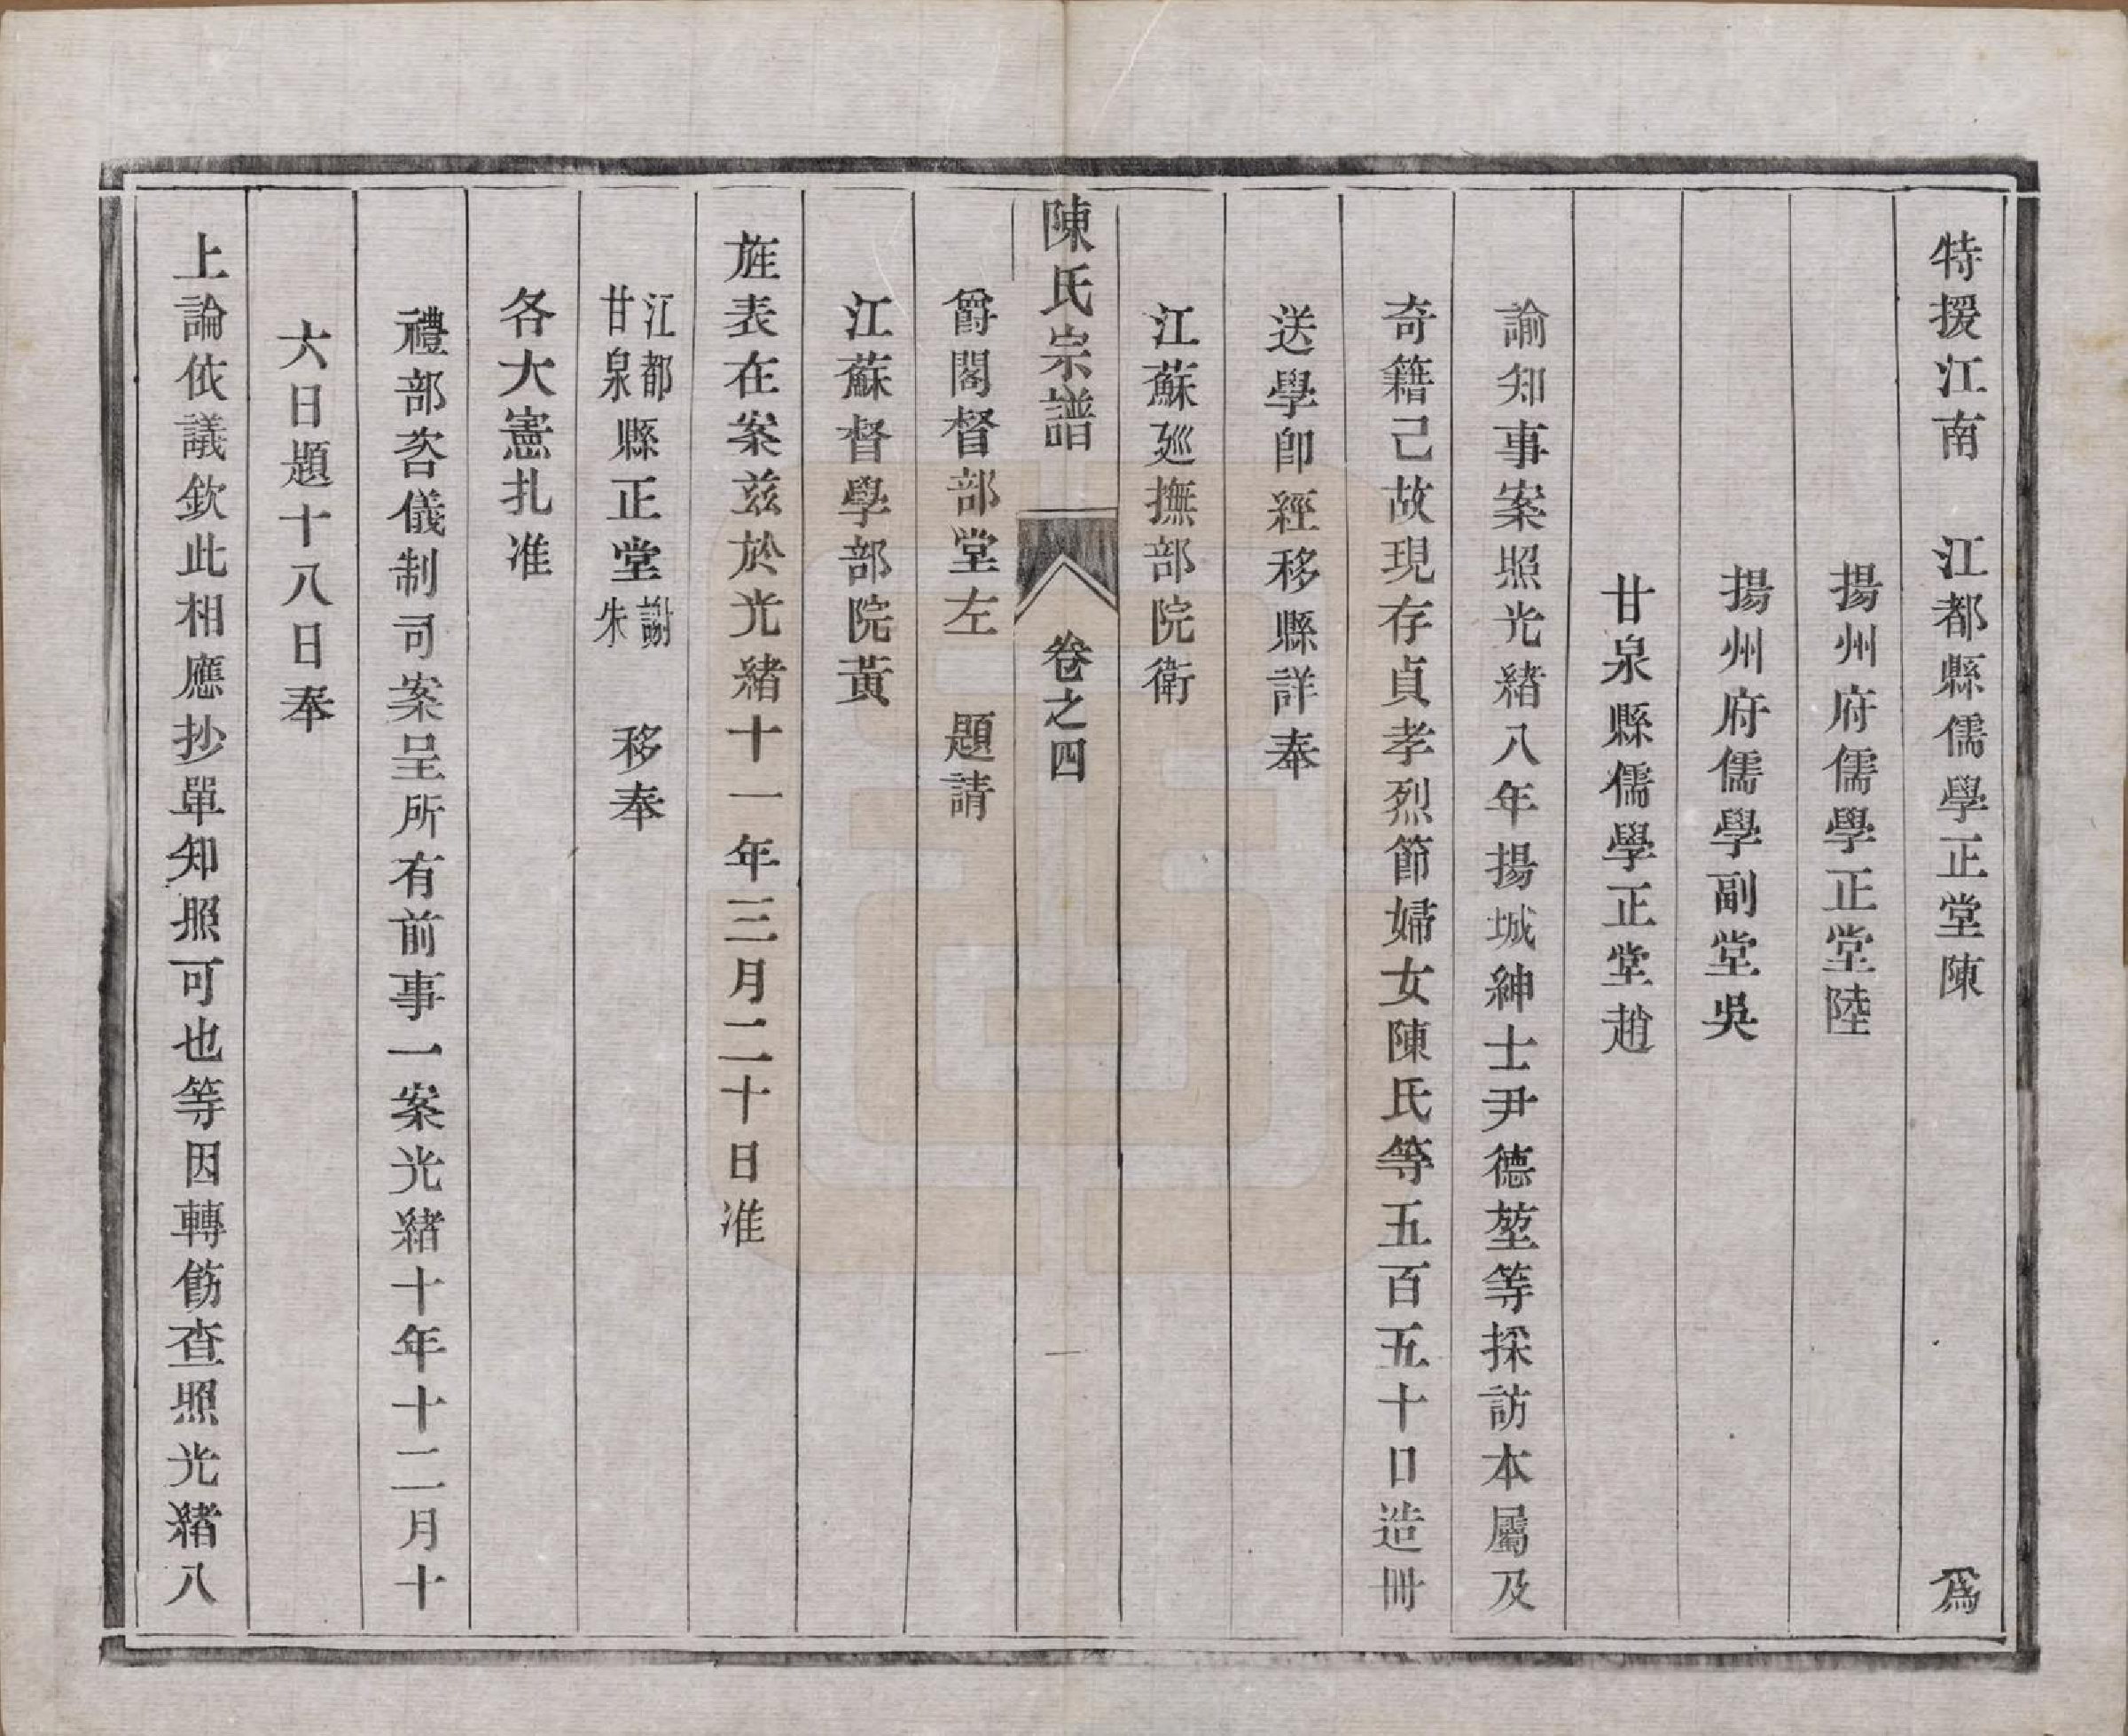 特援江南　江都縣儒學正堂陳　爲
揚州府儒學正堂陸
揚州府儒學副堂吳
甘泉縣儒學正堂趙
諭知事案照光緒八年揚城紳士尹德堃等採訪本屬及
奇籍己故現存貞孝烈節婦女陳氏等五百五十口造冊
送學卽經移縣詳奉
江蘇廵撫部院衛
陳氏宗譜　卷之四
爵閣督部堂左　題請
江蘇督學部院黃
旌表在案兹於光緒十一年三月二十日准
江都甘泉縣正堂謝朱　移奉
各大憲扎准
禮部咨儀制司案呈所有前事一案光緒十年十二月十
六日題十八日奉
上論依議欽此相應抄單知照可也等因轉飭查照光緒八